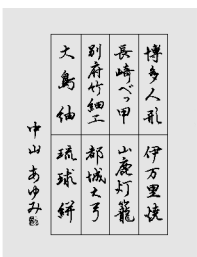 博多人形
伊万里焼
長崎べっ甲
山鹿灯籠
別府竹細工
都城大弓
大島紬
琉球絣
中山あゆみ